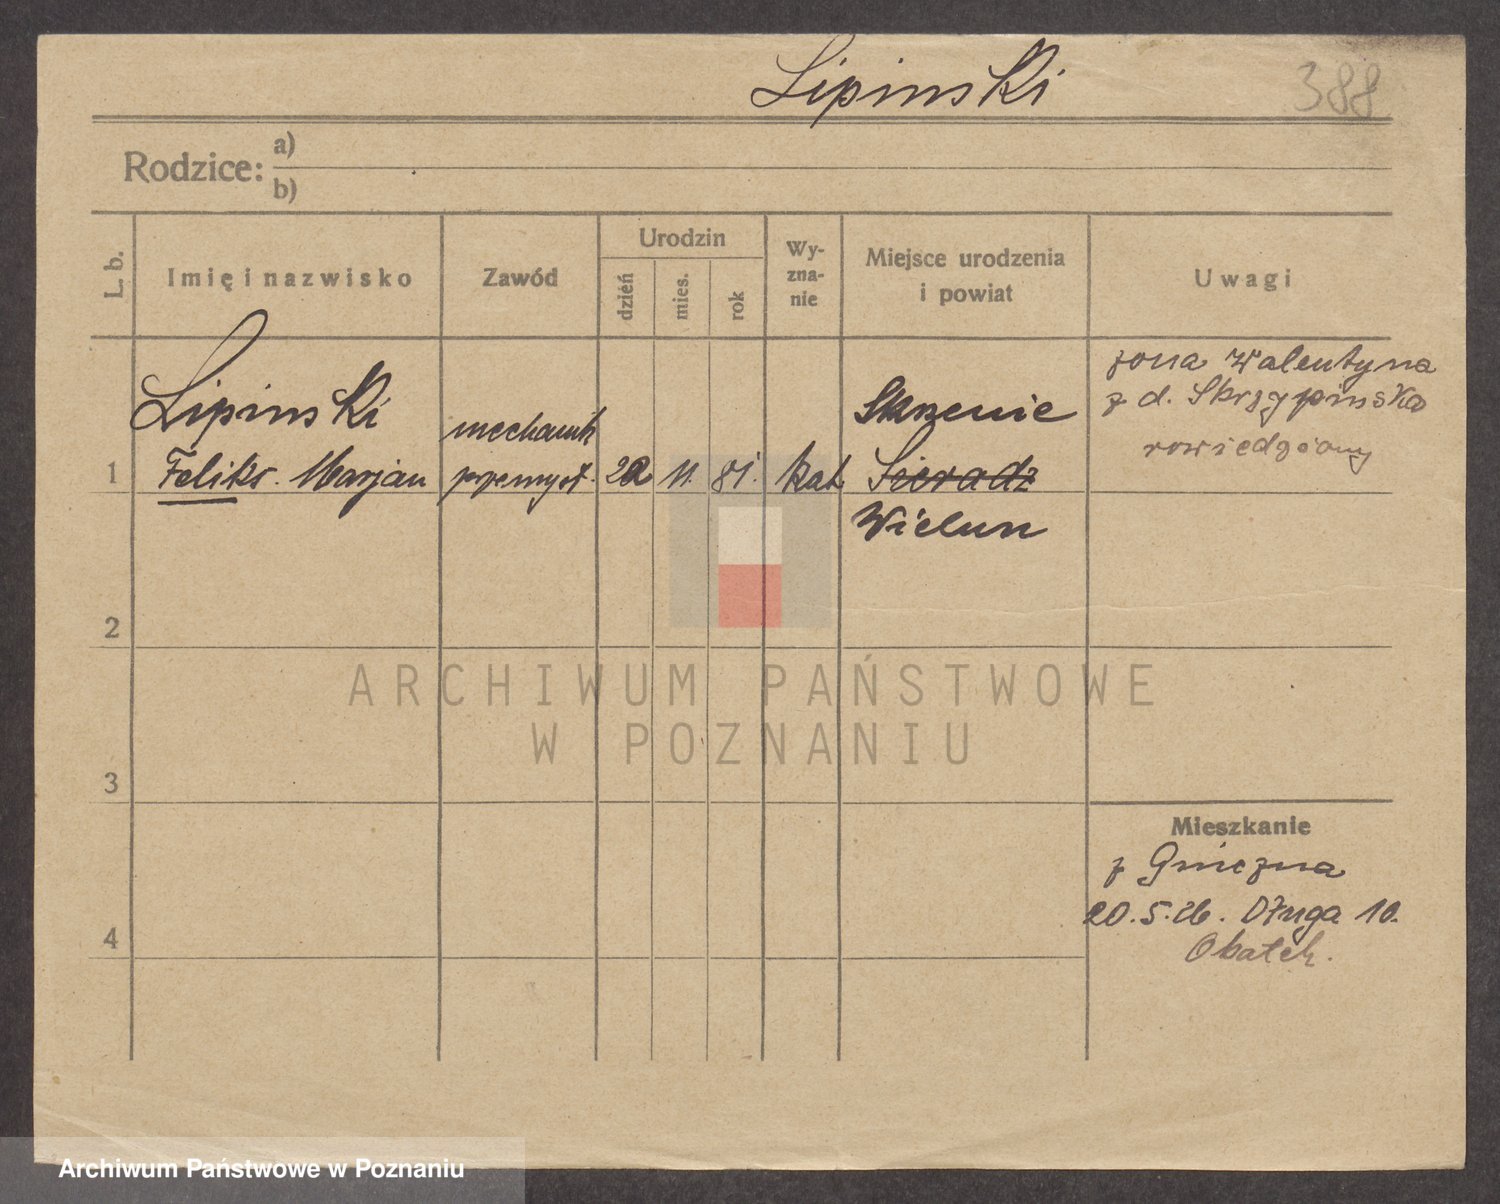 Lipinski
388
Rodzice: a)
b)
L. b.
Imię i nazwisko
Zawód
Urodzin
dzień
mies.
rok
Wy-
zna-
nie
Miejsce urodzenia
i powiat
Uwagi
1
Lipinski
Feliks. Marjan
mechanik
przemysł.
22
11.
81.
kat
Skrzenie
Sieradz
Wielun
zona Walentyna
z d. Skrzypinska
rowiedziony
2
3
4
Mieszkanie
z Gniezna
20.5.26. Długa 10.
ARCHIWUM PAŃSTWOWE
W POZNANIU
Archiwum Państwowe w Poznaniu